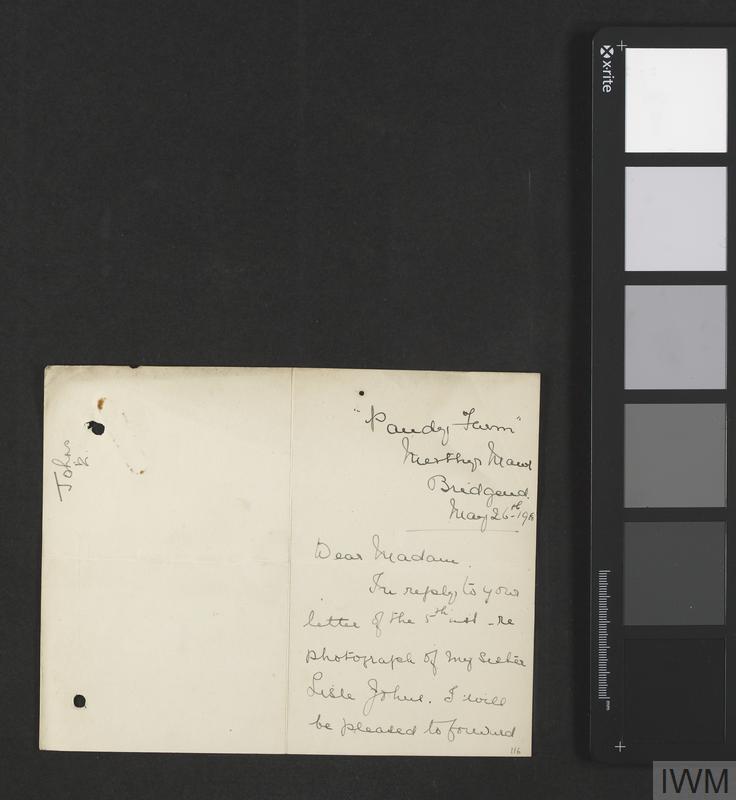 Johns
"Pandy Farm"
Merthyr Mawr
Bridgend.
May 26th 19
Dear Madam.
In reply to your
letter of the 5th inst - re
photograph of my Sister
Lisle Johns. I will
be pleased to forward
116
x-rite
mm
IWM